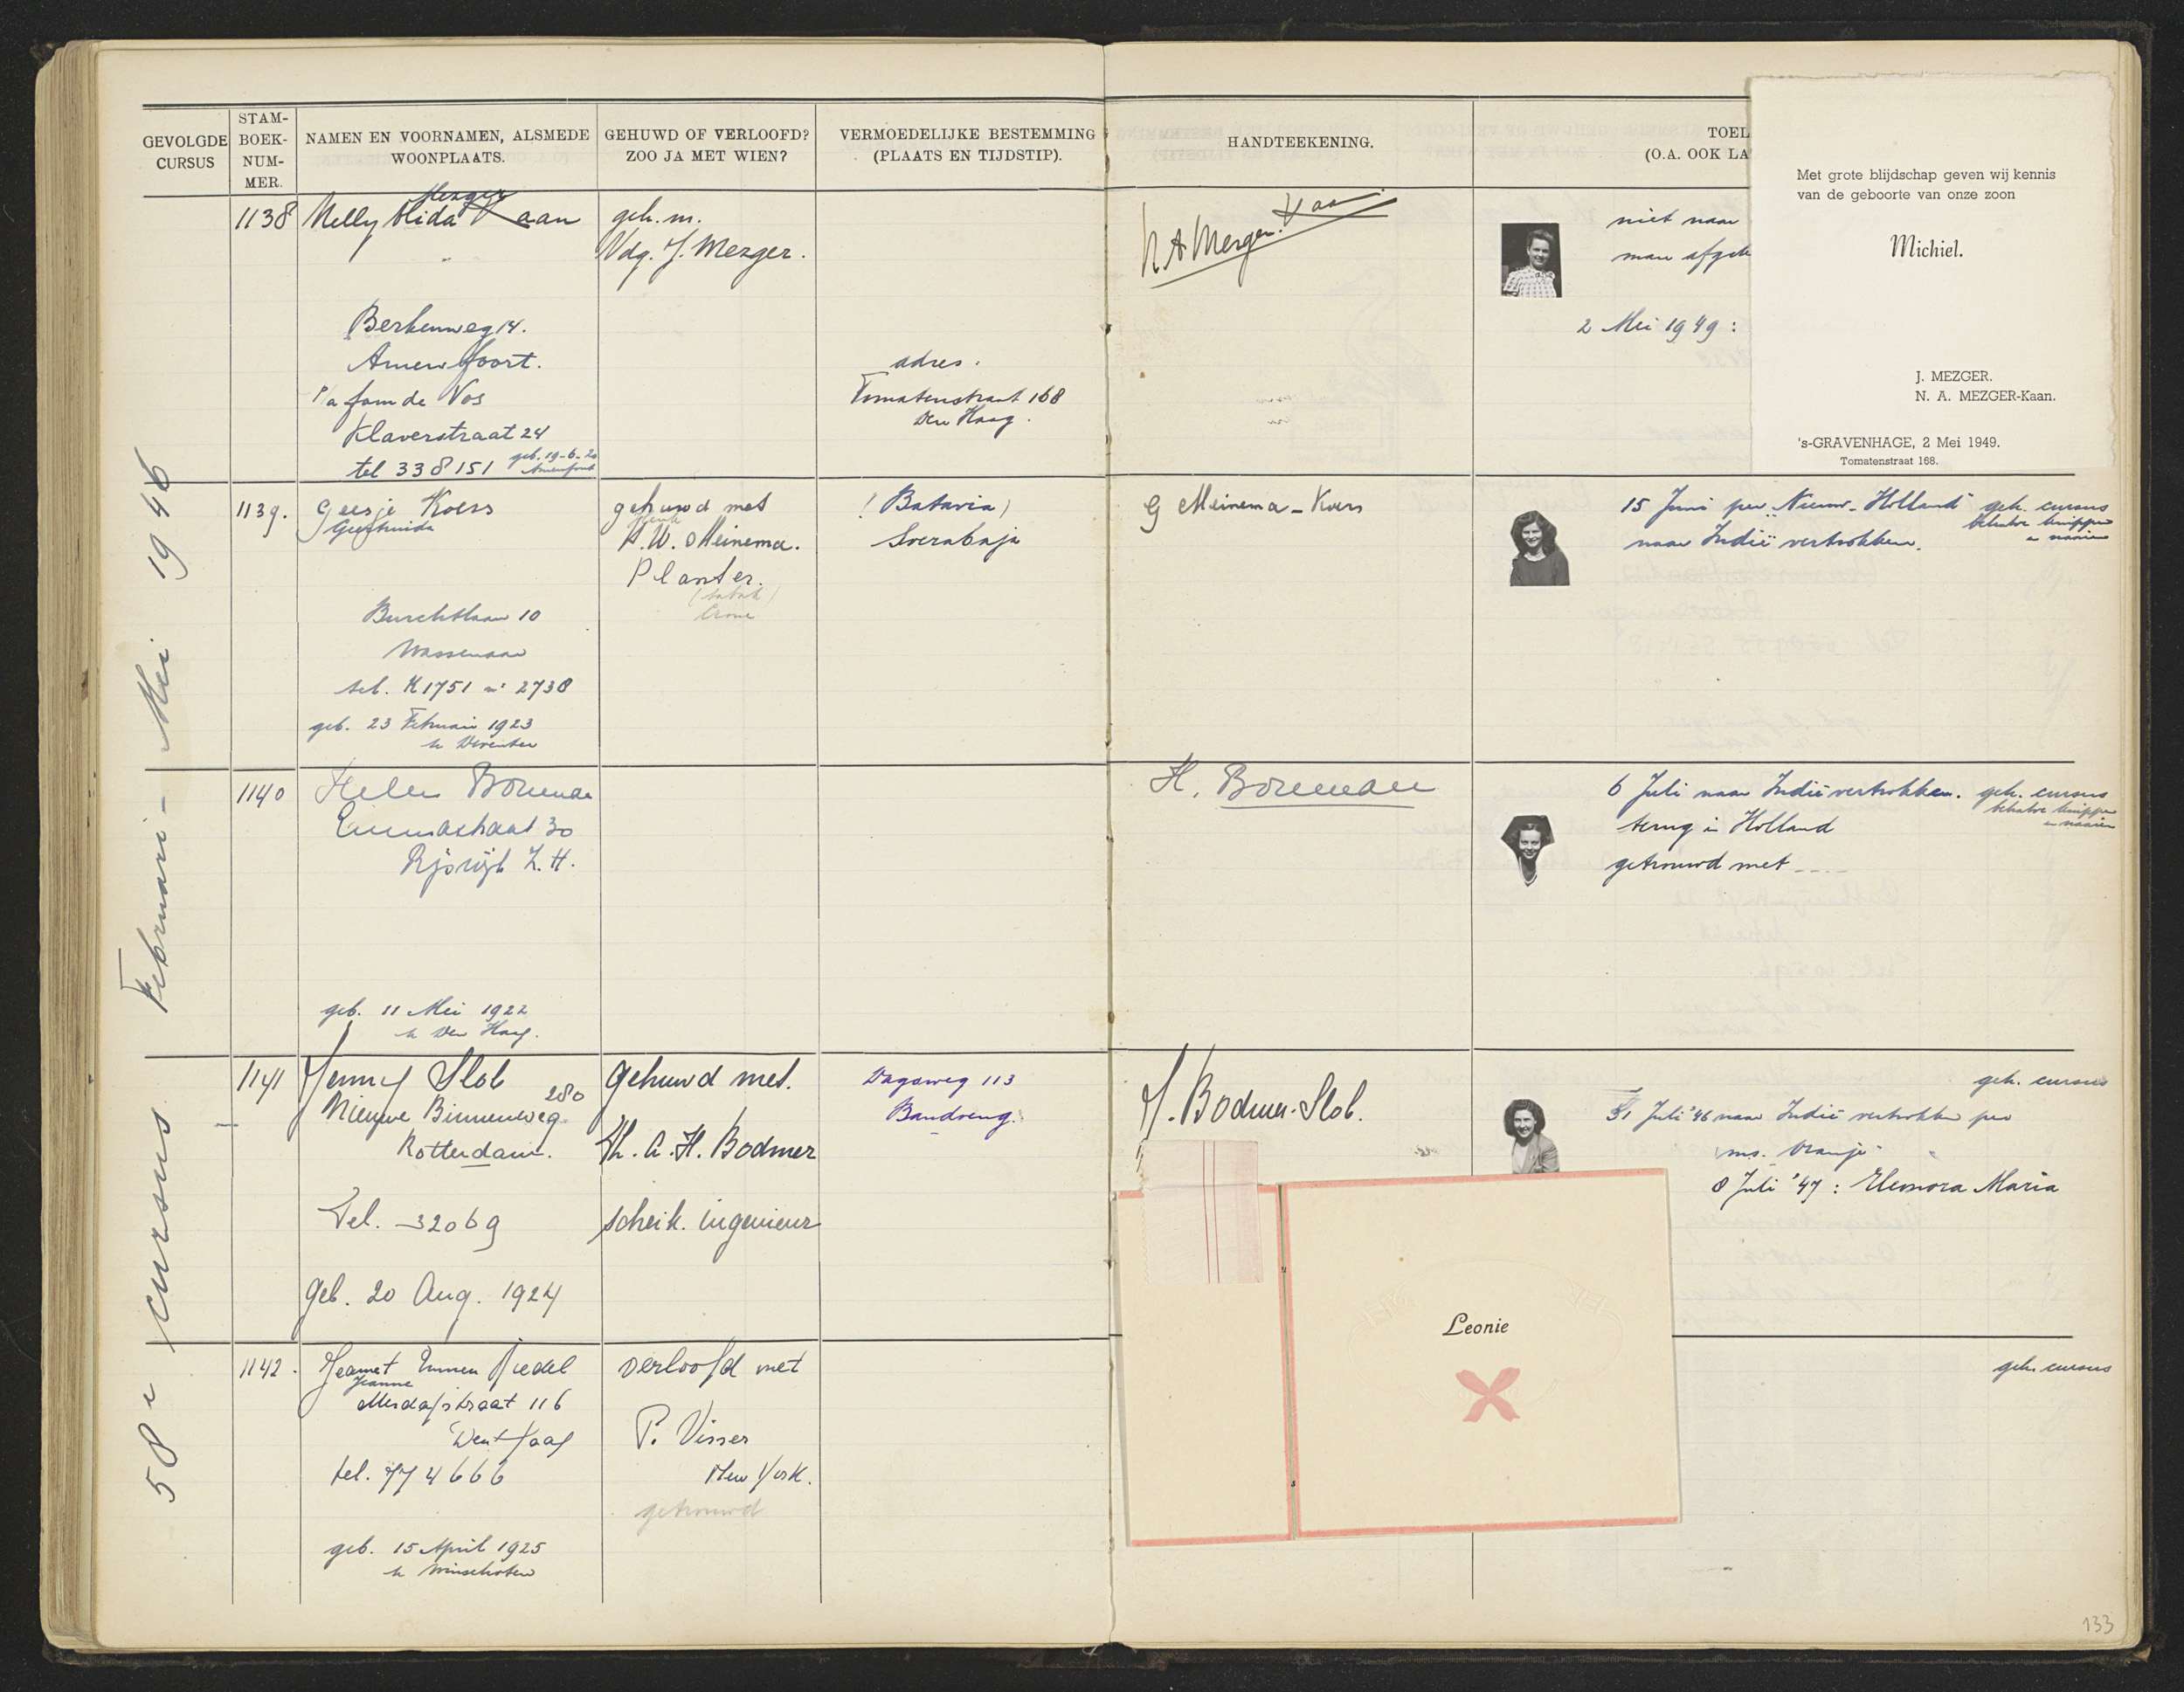 GEVOLGDE CURSUS
STAM-BOEK-NUM-MER.
NAMEN EN VOORNAMEN, ALSMEDE WOONPLAATS.
GEHUWD OF VERLOOFD? ZOO JA MET WIEN?
VERMOEDELIJKE BESTEMMING (PLAATS EN TIJDSTIP).
HANDTEEKENING.
TOEL
(O.A. OOK LA
58e cursus Februari - Mei 1946
1138
Mezger
Nelly Alida Kaan
Berkenweg 14.
Amersfoort.
p/a fam de Vos
Klaverstraat 24
tel 338151
geb. 19-6-20
Amersfoort
geh. m.
Vdg. J. Mezger.
adres.
Tomatenstraat 168
Den Haag.
N A Mezger. Kaan
niet naar
man afgek
2 Mei 1949:
Met grote blijdschap geven wij kennis
van de geboorte van onze zoon
Michiel.
J. MEZGER.
N. A. MEZGER-Kaan.
's-GRAVENHAGE, 2 Mei 1949.
Tomatenstraat 168.
1139.
Geesje Koers
Geertruida
Burchtlaan 10
Wassenaar
tel. K1751 nr 2738
geb. 23 Februari 1923
te Deventer
gehuwd met
Henk
H.W. Meinema.
Planter.
(tabak)
(Batavia)
Soerabaja
G Meinema-Koers
15 Juni per "Nieuw-Holland"
naar Indië vertrokken.
geh. cursus
behalve knippen
en naaien
1140
Helen Boreman
Emmastraat 30
Rijswijk Z.H.
geb. 11 Mei 1922
te Den Haag.
H. Boreman
6 Juli naar Indië vertrokken.
terug in Holland
getrouwd met ....
geh. cursus
behalve knippen
en naaien
1141
Henny Slob
Nieuwe Binnenweg 280
Rotterdam.
Tel. 32069
Geb. 20 Aug. 1924
gehuwd met.
Th. A. H. Bodmer
scheik. ingenieur
Dagoweg 113
Bandoeng.
H. Bodmer-Slob.
geh. cursus
31 Juli '46 naar Indië vertrokken per
ms. Oranje
8 Juli '47: Eleonora Maria
Leonie
1142.
Jeanne
Mesdagstraat 116
Den Haag
tel. 774666
geb. 15 April 1925
te Winschoten
verloofd met
P. Visser
New York.
getrouwd
geh. cursus
133